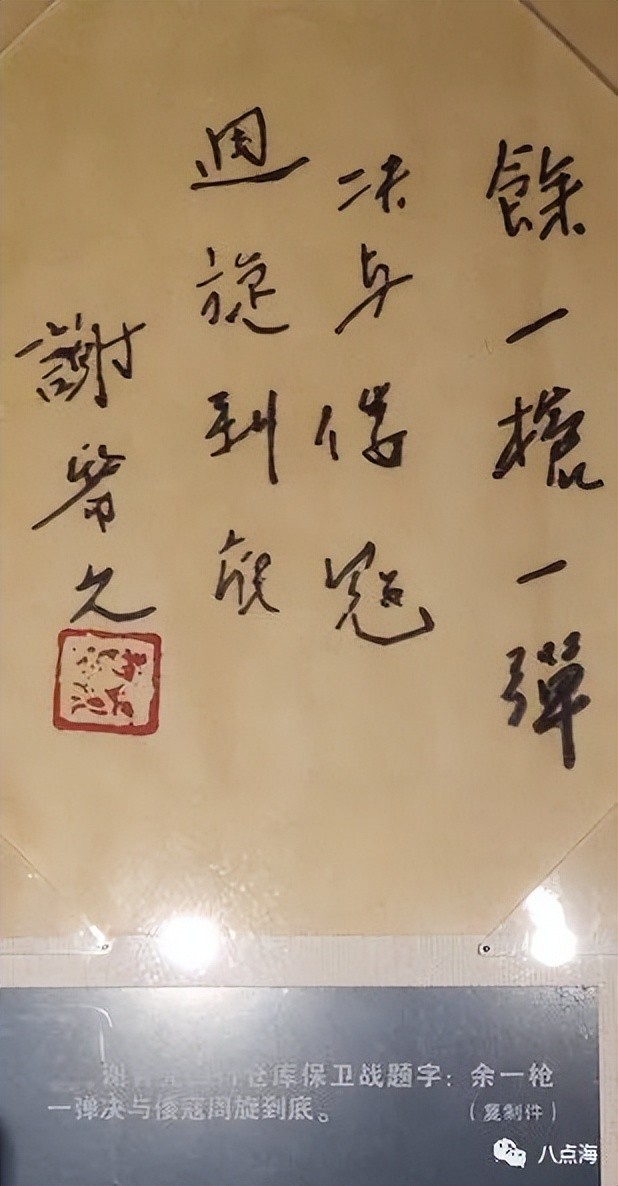 餘一槍一彈
决与倭寇
週旋到底
謝晋元
谢晋元四行仓库保卫战题字：余一枪
一弹决与倭寇周旋到底。（复制件）
八点海